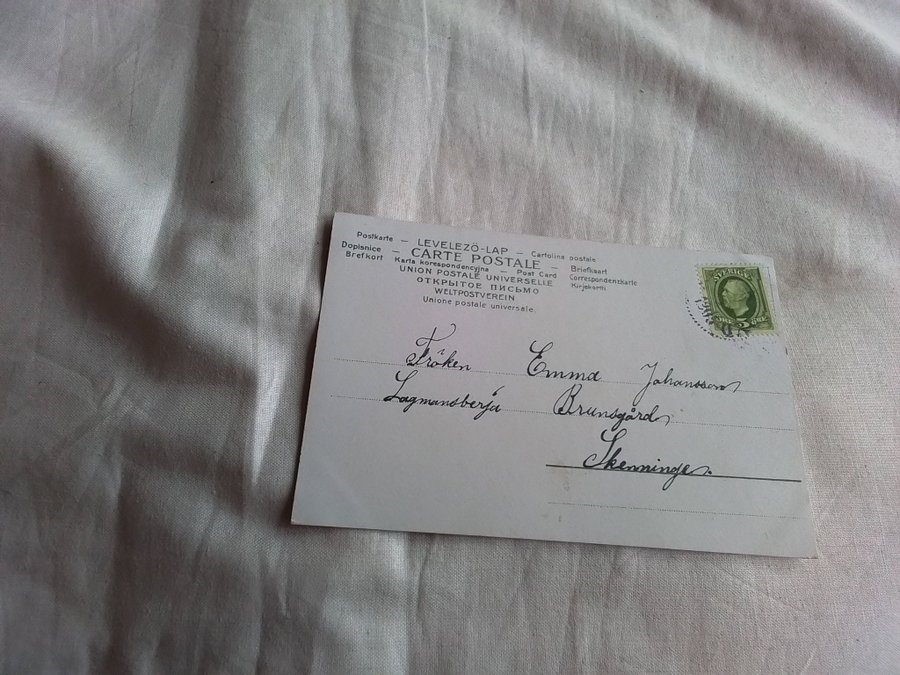 Postkarte – LEVELEZÖ-LAP – Cartolina postale
Dopisnice – CARTE POSTALE – Briefkaart
Brefkort Karta korespondencyjna – Post Card Correspondenzkarte
UNION POSTALE UNIVERSELLE Kirjekortti
ОТКРЫТОЕ ПИСЬМО
WELTPOSTVEREIN
Unione postale universale.
SVERIGE
ÖRE 5 ÖRE
Fröken Emma Johansson
Lagmansberja Brunsgård
Skenninge.